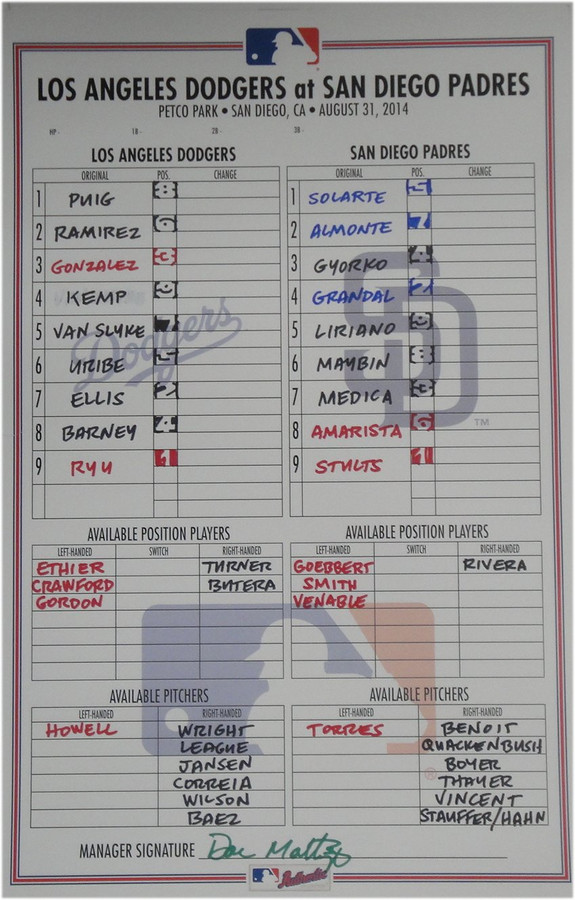 LOS ANGELES DODGERS at SAN DIEGO PADRES
PETCO PARK • SAN DIEGO, CA • AUGUST 31, 2014
HP - 1B - 2B - 3B -
LOS ANGELES DODGERS
ORIGINAL POS. CHANGE
1 PUIG 8
2 RAMIREZ 6
3 GONZALEZ 3
4 KEMP 9
5 VAN SLYKE 7
6 URIBE 5
7 ELLIS 2
8 BARNEY 4
9 RYU 1
SAN DIEGO PADRES
ORIGINAL POS. CHANGE
1 SOLARTE 5
2 ALMONTE 7
3 GYORKO 4
4 GRANDAL 2
5 LIRIANO 9
6 MAYBIN 8
7 MEDICA 3
8 AMARISTA 6
9 STULTS 1
Dodgers
SD
TM
AVAILABLE POSITION PLAYERS
LEFT-HANDED SWITCH RIGHT-HANDED
ETHIER TURNER
CRAWFORD BUTERA
GORDON
AVAILABLE POSITION PLAYERS
LEFT-HANDED SWITCH RIGHT-HANDED
GOEBBERT RIVERA
SMITH
VENABLE
AVAILABLE PITCHERS
LEFT-HANDED RIGHT-HANDED
HOWELL WRIGHT
LEAGUE
JANSEN
CORREIA
WILSON
BAEZ
AVAILABLE PITCHERS
LEFT-HANDED RIGHT-HANDED
TORRES BENOIT
QUACKENBUSH
BOYER
THAYER
VINCENT
STAUFFER/HAHN
®
MANAGER SIGNATURE Don Matt
Authentic